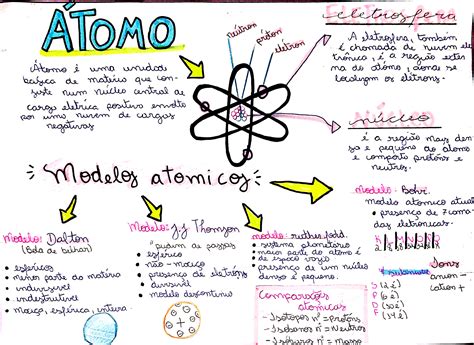 ÁTOMO
Átomo é uma unidade
básica de matéria que con-
siste num núcleo central de
carga elétrica positiva envolto
por uma nuvem de cargas
negativas
nêutron
próton
elétron
eletrosfera
A eletrosfera, também
é chamada de nuvem ele-
trônica, é a região exter-
na do átomo, aonde se
localizam os elétrons.
núcleo
é a região mais den-
sa e pequena do átomo
e comporta prótons e
neutros.
Modelos atomicos
modelo: Dalton
(Bola de bilhar)
• esféricos
• menor parte da matéria
• indivisível
• indestrutível
• maciça, esférica, inteira
modelo: J.J Thomson
"pudim de passas"
• esférico
• não-maciço
• presença de elétrons
• divisível
• modelo descontínuo
modelo:
• sistema planetário
• maior parte do átomo é
de espaço vazio
• presença de um núcleo
denso e pequeno.
Comparações
atomicas
- Isótopos n° = Prótons
- Isótonos n° = Neutros
- Isóbaros n° = Massa
modelo: Bohr.
modelo atomico atual
• presença de 7 cama
das eletrônicas.
K L M N O P Q
S (2é)
P (6é)
D (10é)
F (14é)
Íons
anion -
cation +